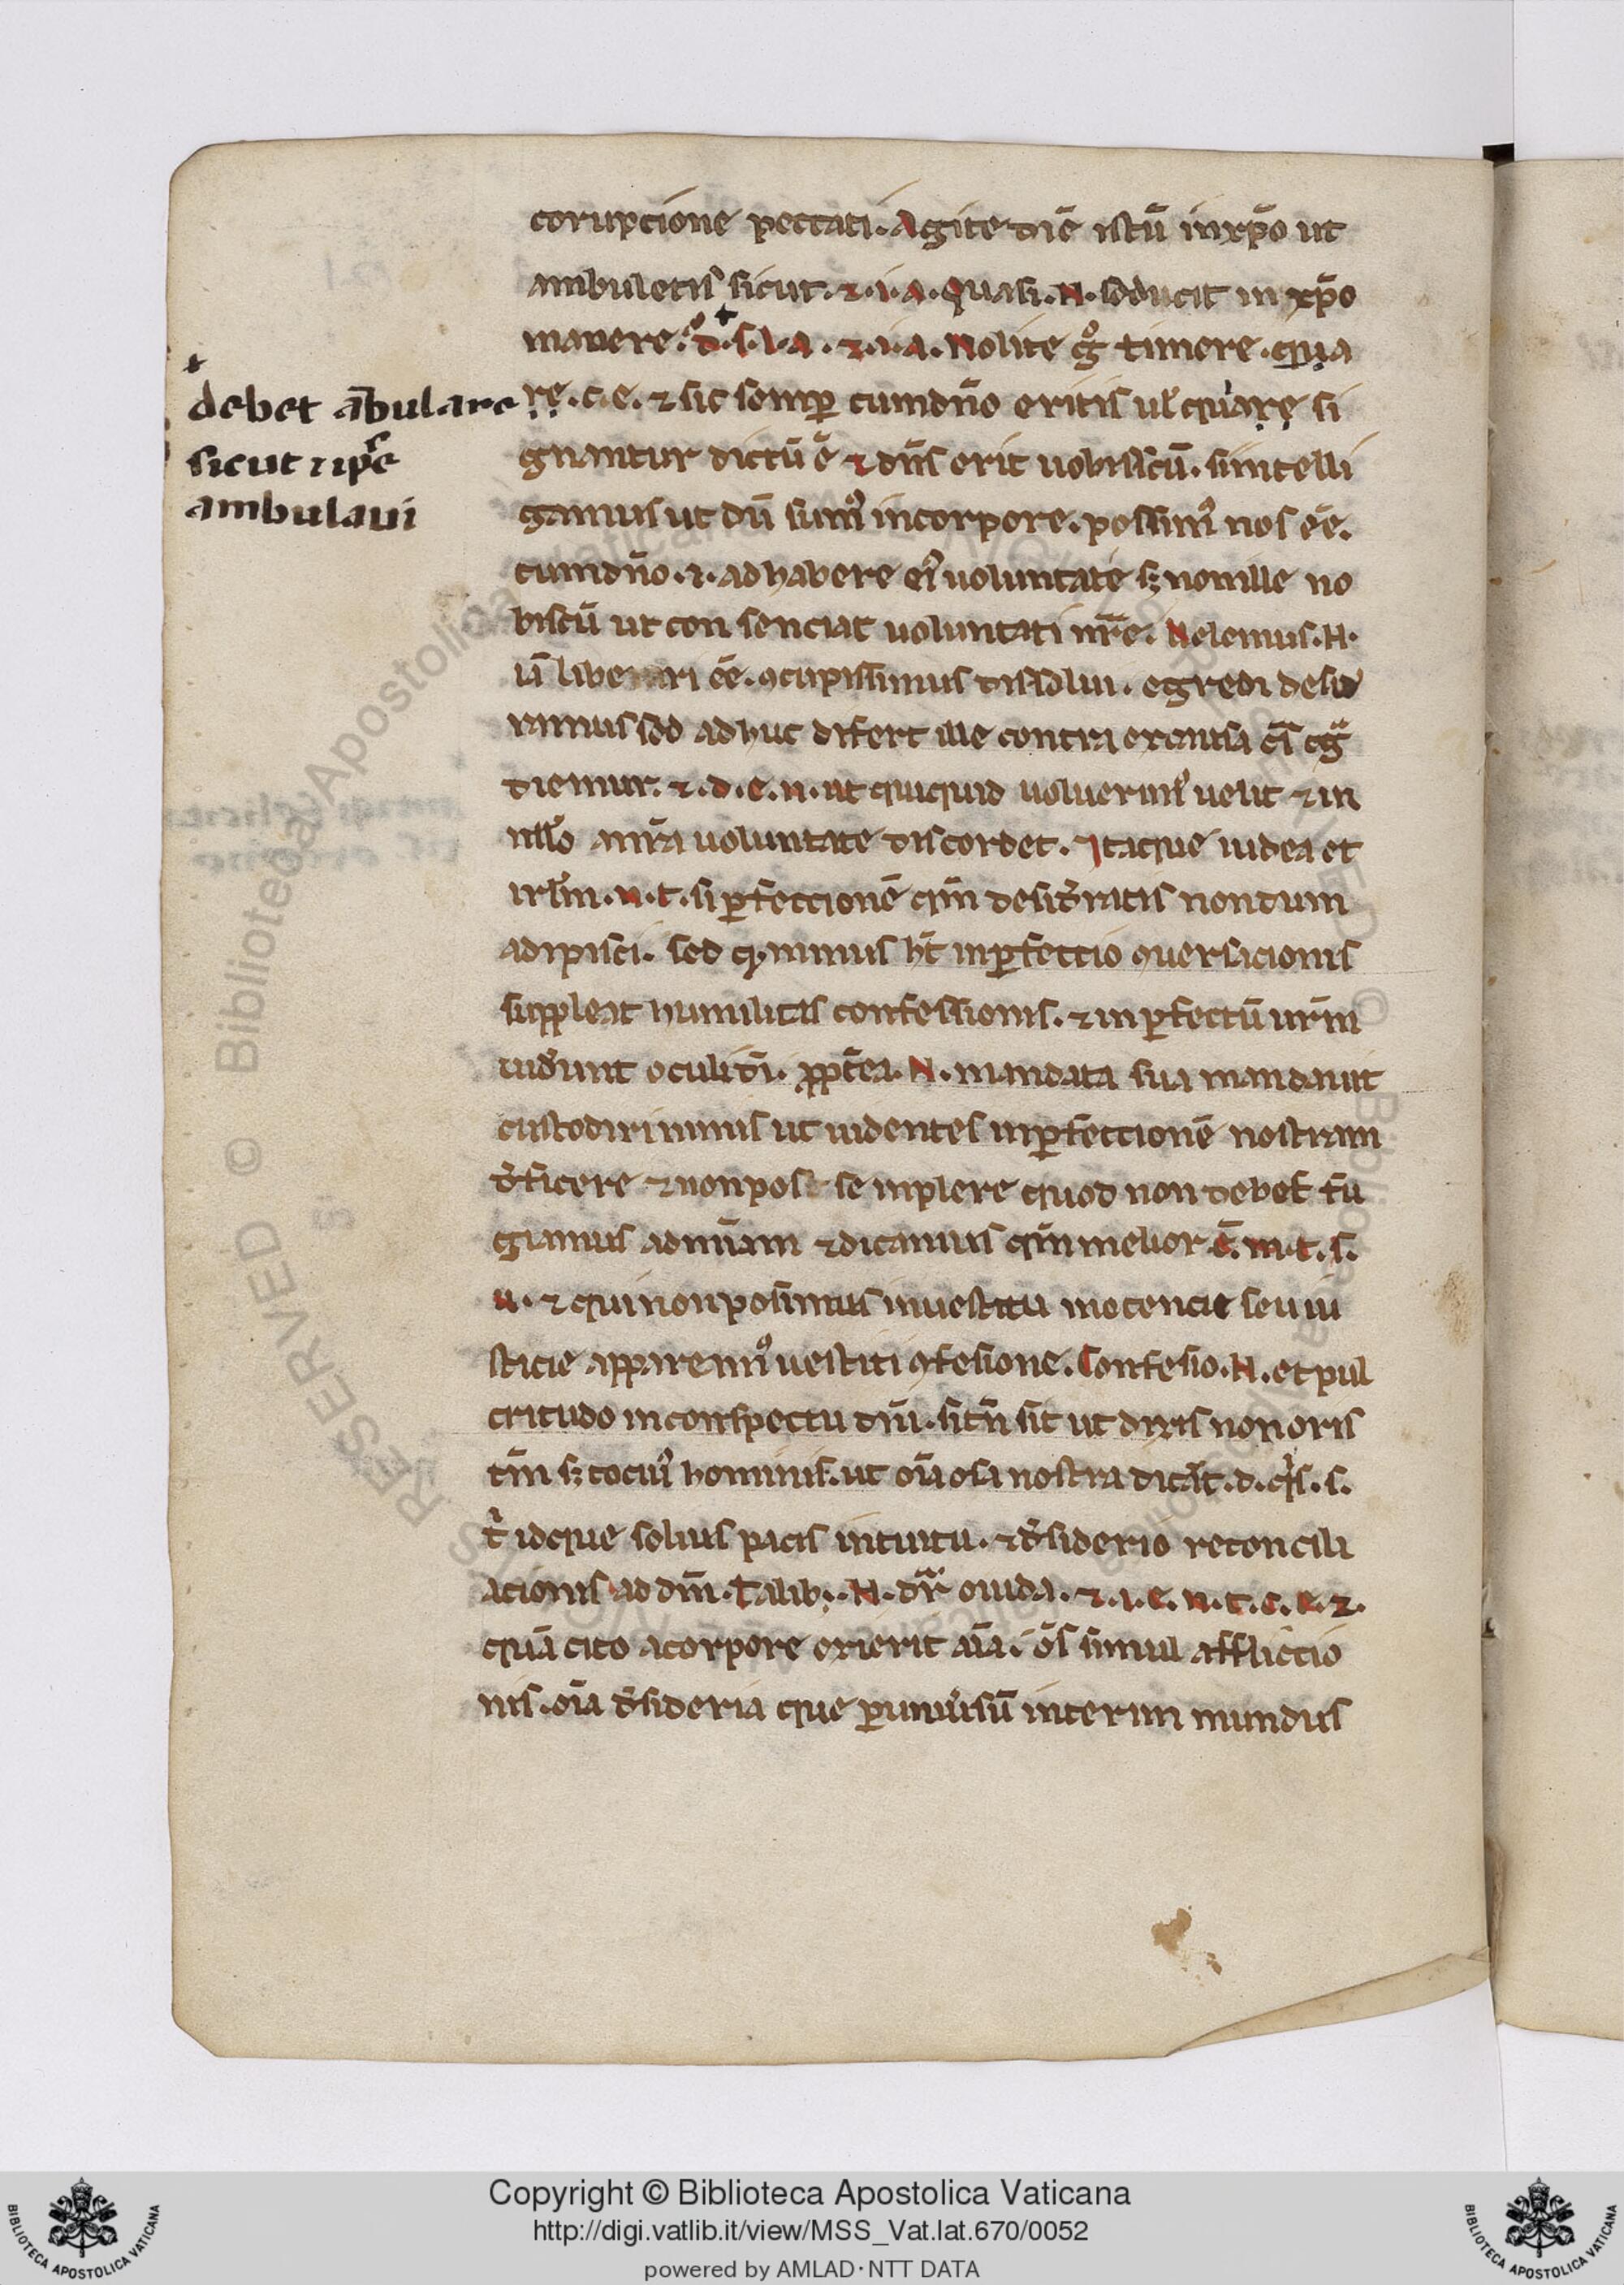 corupcione peccati. Agite diē istū in xp̄o ut
ambuletis sicut. ⁊. i. a. Quasi. N. se ducit in xp̄o
manere. d. s. i. a. ⁊. i. a. Nolite gͦ timere. qua
re. c. e. ⁊ sic semꝑ cum dn̄o eritis ul̓ quare si
gnantur dictū ē ⁊ dn̄s erit uobiscū. si intelli
gamus ut dū sumꝰ in corpore. possimꝰ nos eē.
cum dn̄o. ⁊. adhabere eiꝰ uoluntate sꝫ non ille no
biscū ut con senciat uoluntati nr̄e. Nolemus. N.
iā liberari eē. ꝯcupissimus dissolui. egredi desid
ramus sed adhuc difert ille contra
diemur. ⁊. d. e. n. ut quicquid uoluerimꝰ uelit ⁊ in
nullo a nr̄a uoluntate discordet. Itaque iudea et
irl̄m. n. t. si ꝑfeccionē qm̄ desid̓ratis nondum
adipisci. sed minus h̄t inꝑfectio ꝯuersacionis
suppleat humilitas confessionis. ⁊ inꝑfectū ur̄m
uid̓unt oculi di. ꝓpt̓ea. N. mandata sua mandauit
custodiri nimis ut uidentes inꝑfeccionē nostram
d̓ficere ⁊ non pos se inplere quod non debet fu
giamus ad mīam ⁊ dicamus qm̄ melior ē. m. t. s.
u. ⁊ qui non possimus in uestitu inocencie seu iu
sticie appareamꝰ uestiti ꝯfesione. Confesio. N. et pul
critudo in conspectu dni. si tn̄ sit ut dixis non oris
tm̄ sꝫ tociuꝰ hominis. ut oīa osa nostra dicāt. d. qͥs. s.
t̓ idque solius pacis intuitu. ⁊ d̓siderio reconcili
acionis ad dm̄. Talibꝫ. N. dr̄ o iuda. ⁊. i. e. n. t. c. e. ⁊.
quā cito a corpore exierit aīa. ōs simul afflictio
nis. oīa d̓sideria que ꝑ uniu̓sū interim mundus
debet ābulare
sicut ⁊ ipse
ambulaui
Copyright © Biblioteca Apostolica Vaticana
http://digi.vatlib.it/view/MSS_Vat.lat.670/0052
powered by AMLAD·NTT DATA
BIBLIOTECA APOSTOLICA VATICANA
BIBLIOTECA APOSTOLICA VATICANA